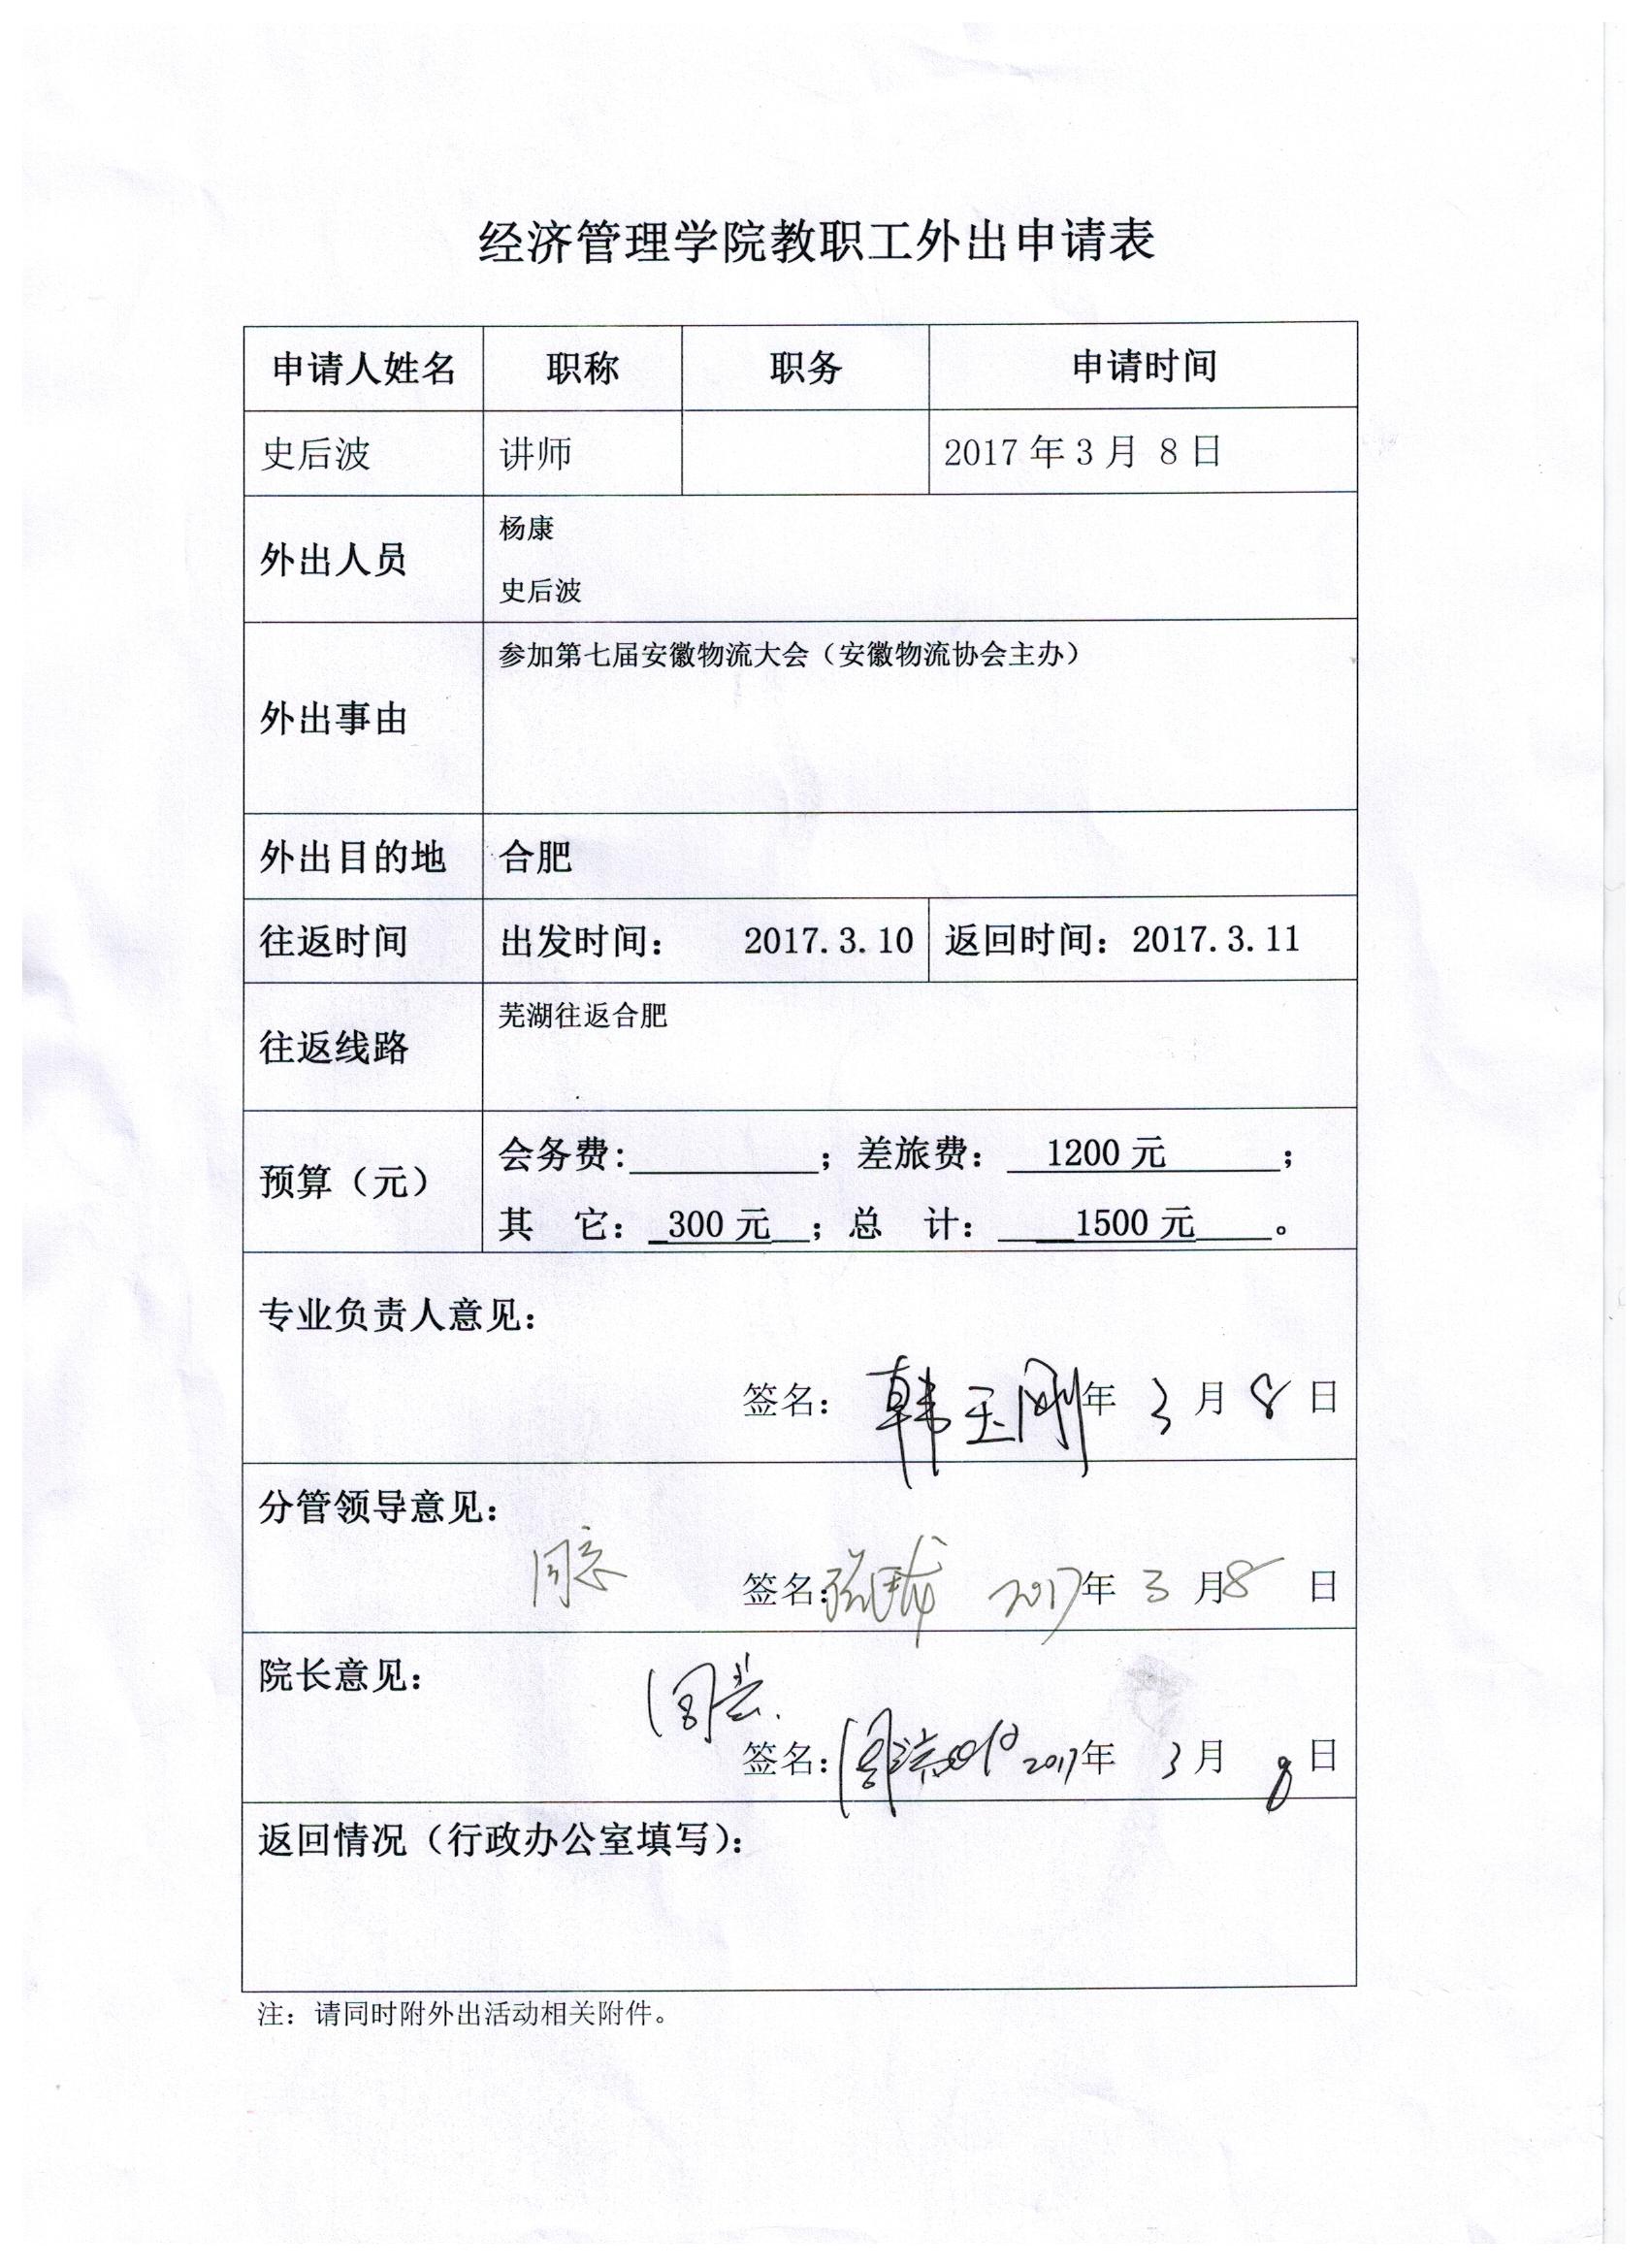 经济管理学院教职工外出申请表
申请人姓名 职称 职务 申请时间
史后波 讲师 2017年3月 8日
外出人员
杨康
史后波
外出事由
参加第七届安徽物流大会（安徽物流协会主办）
外出目的地 合肥
往返时间 出发时间： 2017.3.10 返回时间：2017.3.11
往返线路
芜湖往返合肥
预算（元）
会务费:__________；差旅费：__1200元______；
其 它：_300元__；总 计：____1500元____。
专业负责人意见：
签名：韩玉刚 年 3 月 8 日
分管领导意见：
同意
签名： 2017年 3 月8 日
院长意见：
同意.
签名： 2017年 3月 8日
返回情况（行政办公室填写）：
注：请同时附外出活动相关附件。